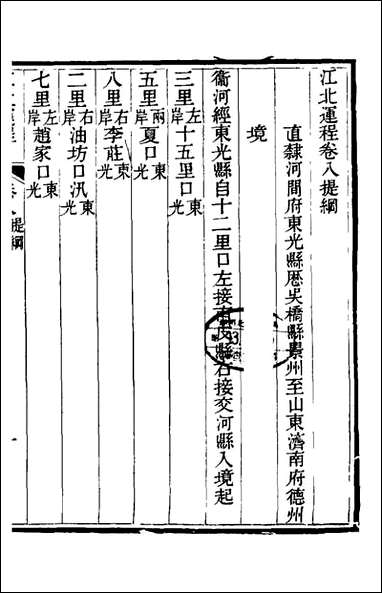 江北運程卷八提綱
直隸河間府東光縣歷吳橋縣景州至山東濟南府德州
境
衞河經東光縣自十二里口左接南皮縣右接交河縣入境起
三里左岸十五里口東光
五里兩岸夏口東光
八里右岸李莊東光
二里右岸油坊口汛東光
七里左岸趙家口東光
卷八提綱